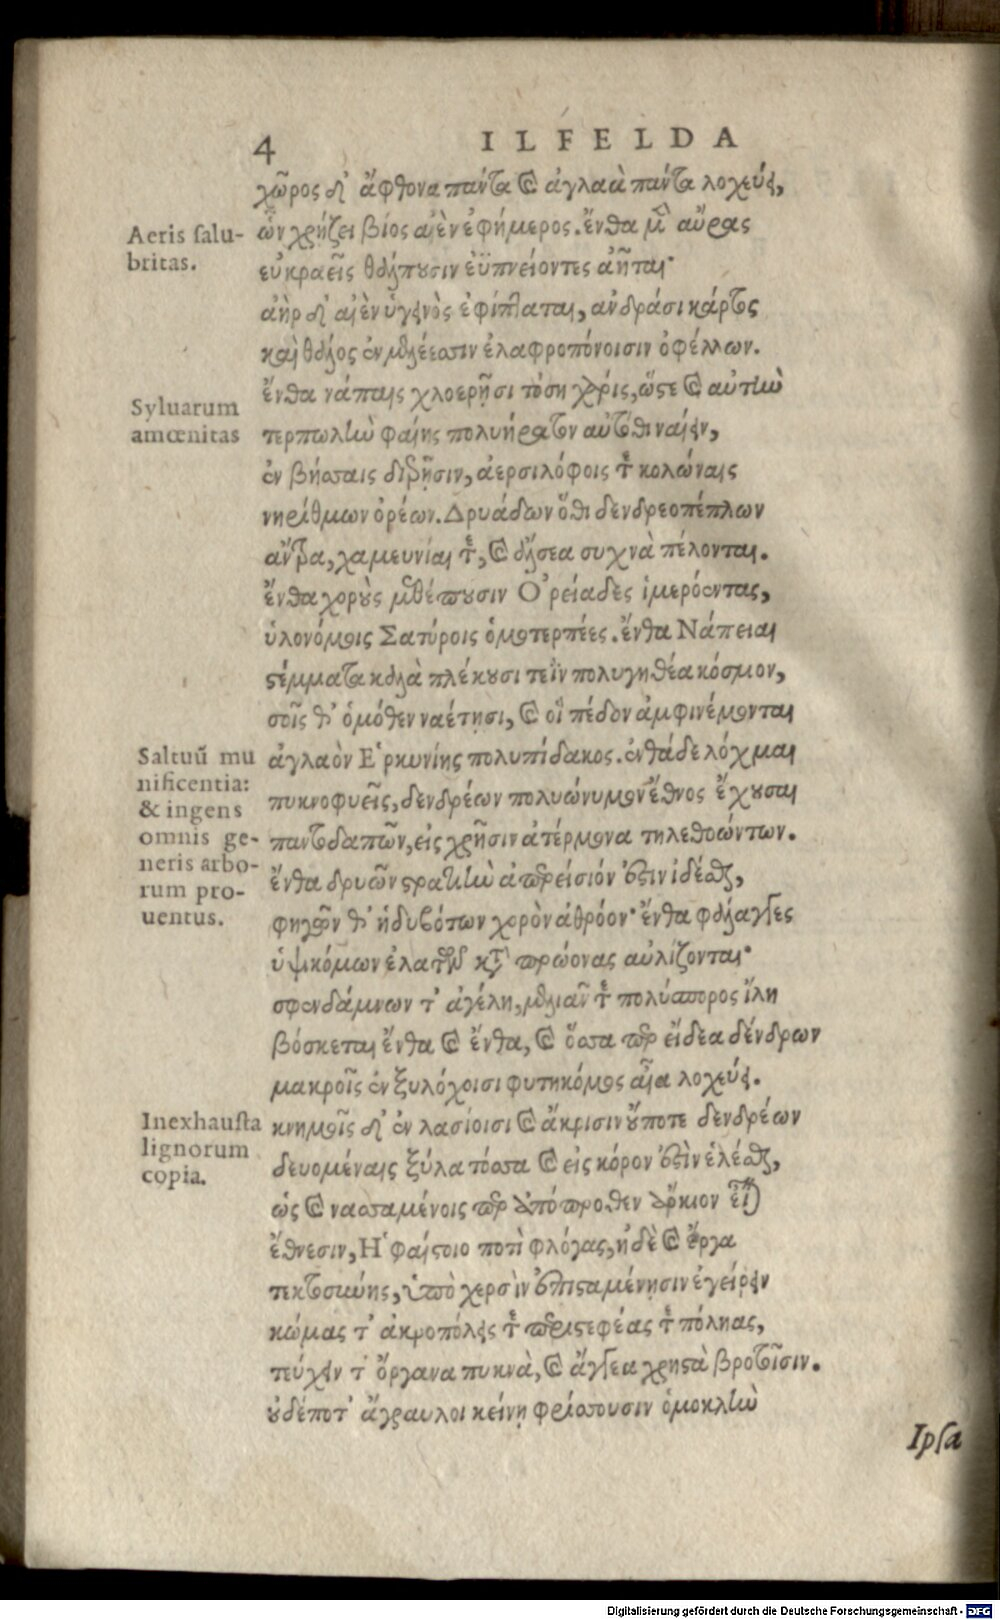 4 ILFELDA
χῶρος δ' ἄφθονα πάντα καὶ ἀγλαὰ πάντα λοχεύει,
Aeris salu-
britas.
ὧν χρῄζει βίος αἰὲν ἐφήμερος. ἔνθα μὲν αὔρας
εὐκραεῖς θάλπουσιν ἐϋπνείοντες ἀῆται·
ἀὴρ δ' αἰὲν ὑγεινὸς ἐφίπταται, ἀνδράσι κάρτος
καὶ θάλος ἐν μελέεσσιν ἐλαφροπόνοισιν ὀφέλλων.
Syluarum
amœnitas
ἔνθα νάπαις χλοερῇσι τόση χάρις, ὥςε καὶ αὐτὴν
τερπωλὴν φαίης πολυήρατον αὐτόθι ναίειν,
ἐν βήσσαις διερῇσιν, ἀερσιλόφοις τε κολώναις
νηρίθμων ὀρέων. Δρυάδων ὅθι δενδρεοπέπλων
ἄντρα, χαμευνίαι τε, καὶ ἄλσεα συχνὰ πέλονται.
ἔνθα χοροὺς μεθέπουσιν Ὀρείαδες ἱμερόεντας,
ὑλονόμοις Σατύροις ὁμοτερπέες. ἔνθα Νάπειαι
ςέμματα καλὰ πλέκουσι τεῒν πολυγηθέα κόσμον,
σοῖς θ' ὁμόθεν ναέτῃσι, καὶ οἳ πέδον ἀμφινέμονται
Saltuũ mu
nificentia:
& ingens
omnis ge-
neris arbo-
rum pro-
uentus.
ἀγλαὸν Ἑρκυνίης πολυπίδακος. ἐνθάδε λόχμαι
πυκνοφυεῖς, δενδρέων πολυώνυμον ἔθνος ἔχουσαι
παντοδαπῶν, εἰς χρῆσιν ἀτέρμονα τηλεθοώντων.
ἔνθα δρυῶν ςρατιὴν ἀπερείσιόν ἐςιν ἰδέσθαι,
φηγῶν θ' ἡδυβότων χορὸν ἀθρόον· ἔνθα φάλαγγες
ὑψικόμων ἐλατῶν κατὰ πρώονας αὐλίζονται·
σφενδάμνων τ' ἀγέλη, μελιᾶν τε πολύσπορος ἴλη
βόσκεται ἔνθα καὶ ἔνθα, καὶ ὅσσα περ εἴδεα δένδρων
μακροῖς ἐν ξυλόχοισι φυτηκόμος αἶα λοχεύει.
Inexhausta
lignorum
copia.
κνημοῖς δ' ἐν λασίοισι καὶ ἄκρισιν οὔποτε δενδρέων
δευομέναις ξύλα τόσσα καὶ εἰς κόρον ἐςὶν ἑλέσθαι,
ὡς καὶ νασσαμένοις περ ἀπόπροθεν ἄρκιον εἶναι
ἔθνεσιν, Ἡφαίςοιο ποτὶ φλόγας, ἠδὲ καὶ ἔργα
τεκτοσύνης, ὑπὸ χερσὶν ἐπιςαμένῃσιν ἐγείρειν
κώμας τ' ἀκροπόλεις τε περιςεφέας τε πόληας,
τεύχειν τ' ὄργανα πυκνὰ, καὶ ἄγγεα χρηςὰ βροτοῖσιν.
οὐδέποτ' ἄγραυλοι κείνῃ φρίσσουσιν ὁμοκλὴν
Ipsa
Digitalisierung gefördert durch die Deutsche Forschungsgemeinschaft - DFG